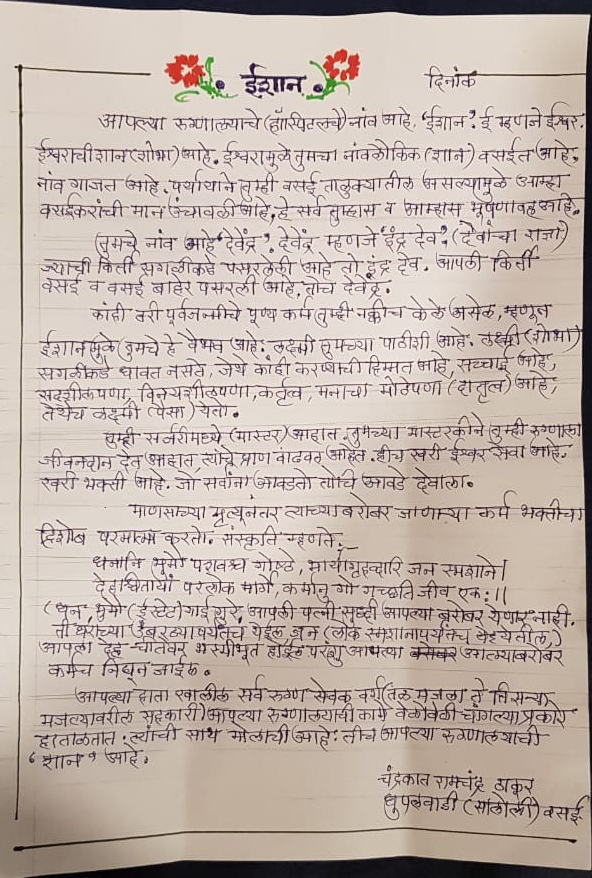 ईशान
दिनांक
आपल्या रुग्णालयाचे (हॉस्पिटलचे) नांव आहे. 'ईशान'. ई म्हणजे ईश्वर.
ईश्वराची शान (शोभा) आहे. ईश्वरामुळे तुमचा नांवलौकिक (शान) वसईत आहे.
नांव गाजत आहे. पर्यायाने तुम्ही वसई तालुक्यातील असल्यामुळे आम्हा
वसईकरांची मान उंचावली आहे. हे सर्व तुम्हास व आम्हास भूषणावह आहे.
तुमचे नांव आहे 'देवेंद्र'. देवेंद्र म्हणजे 'इंद्र देव'. (देवांचा राजा)
ज्याची किर्ती सगळीकडे पसरलेली आहे तो इंद्र देव. आपली किर्ती
वसई व वसई बाहेर पसरली आहे. तोच देवेंद्र.
कांही तरी पूर्वजन्मीचे पूण्य कर्म तुम्ही नक्कीच केले असेल, म्हणून
ईशानमुळे तुमचे हे वैभव आहे. लक्ष्मी तुमच्या पाठीशी आहे. लक्ष्मी (शोभा)
सगळीकडे धावत नसते, जेथे कांही करण्याची हिम्मत आहे, सच्चाई आहे,
सदशीलपणा, विनयशीलपणा, कर्तृत्व, मनाचा मोठेपणा (दातृत्व) आहे,
तेथेच लक्ष्मी (पैसा) येतो.
तुम्ही सर्जरीमध्ये (मास्टर) आहात. तुमच्या मास्टरकीने तुम्ही रुग्णाला
जीवनदान देत आहात त्यांचे प्राण वाचवत आहेत. हीच खरी ईश्वर सेवा आहे.
खरी भक्ती आहे. जो सर्वांना आवडतो तोचि आवडे देवाला.
माणसाच्या मृत्यूनंतर त्याच्याबरोबर जाणाऱ्या कर्म भक्तीचा
हिशोब परमात्मा करतो. संस्कृति म्हणते:-
धनानि भूमौ पशवश्च गोष्ठे, भार्यागृहद्वारि जन स्मशाने।
देहश्चितायां परलोक मार्गे, कर्मानु गो गच्छति जीव एक:।।
(धन, भूमी (इस्टेट) गाई गुरे, आपली पत्नी सुध्दी आपल्या बरोबर येणार नाही.
ती घराच्या उंबरठ्यापर्यंतच येईल, जन (लोक स्मशानापर्यंतच येतील)
आपला देह चितेवर भस्मीभूत होईल परंतु आपल्या आत्म्याबरोबर
कर्मच निघून जाईल.
आपल्या हाता खालील सर्व रुग्ण सेवक वर्ग (तळ मजला ते तिसऱ्या
मजल्यावरील सहकारी) आपल्या रुग्णालयाची कामे वेळोवेळी चांगल्या प्रकारे
हाताळतात. त्यांची साथ मोलाची आहे. तीच आपल्या रुग्णालयाची
'शान' आहे.
चंद्रकांत रामचंद्र ठाकूर
धुपळवाडी (सालोली) वसई